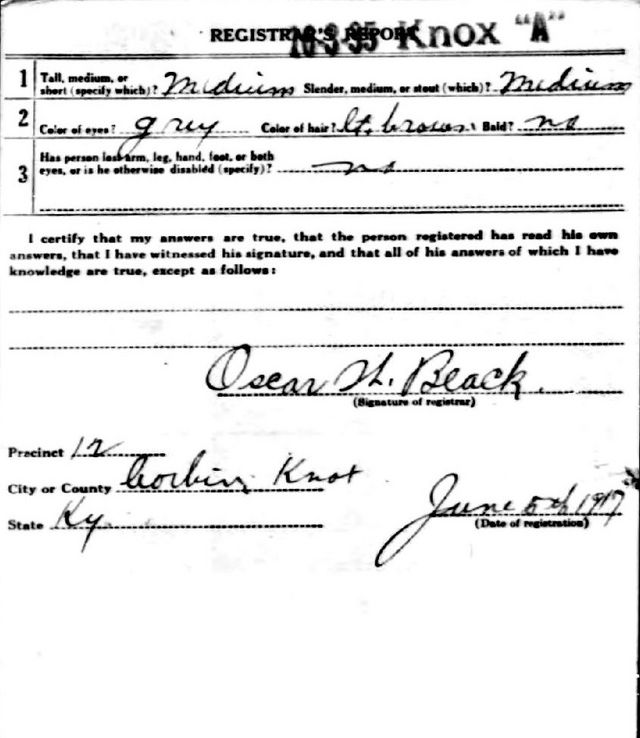 REGISTRAR'S REPORT
16-3-35 Knox "A"
1 Tall, medium, or short (specify which)? Medium Slender, medium, or stout (which)? Medium
2 Color of eyes? grey Color of hair? lt. brown Bald? no
3 Has person lost arm, leg, hand, foot, or both
eyes, or is he otherwise disabled (specify)? no
I certify that my answers are true, that the person registered has read his own
answers, that I have witnessed his signature, and that all of his answers of which I have
knowledge are true, except as follows:
Oscar H. Black.
(Signature of registrar)
Precinct 12
City or County Corbin Knox
State Ky.
June 5th 1917
(Date of registration)